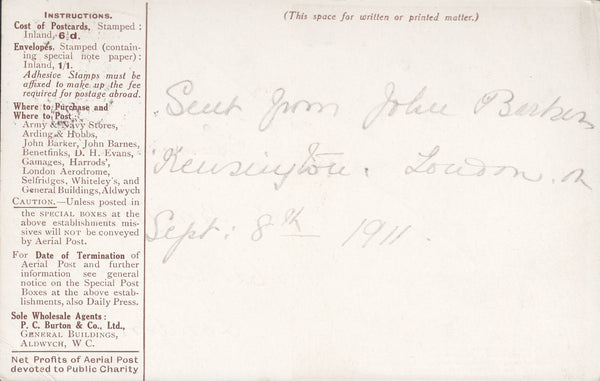 INSTRUCTIONS.
Cost of Postcards, Stamped:
Inland, 6½d.
Envelopes, Stamped (contain-
ing special note paper):
Inland, 1/1.
Adhesive Stamps must be
affixed to make up the fee
required for postage abroad.
Where to Purchase and
Where to Post:
Army & Navy Stores,
Arding & Hobbs,
John Barker, John Barnes,
Benetfinks, D. H. Evans,
Gamages, Harrods',
London Aerodrome,
Selfridges, Whiteley's, and
General Buildings, Aldwych
CAUTION.—Unless posted in
the SPECIAL BOXES at the
above establishments mis-
sives will NOT be conveyed
by Aerial Post.
For Date of Termination of
Aerial Post and further
information see general
notice on the Special Post
Boxes at the above estab-
lishments, also Daily Press.
Sole Wholesale Agents:
P. C. Burton & Co., Ltd.,
GENERAL BUILDINGS,
ALDWYCH, W C.
Net Profits of Aerial Post
devoted to Public Charity
(This space for written or printed matter.)
Sent from John Barker
Kensington. London.
Sept: 8th 1911.